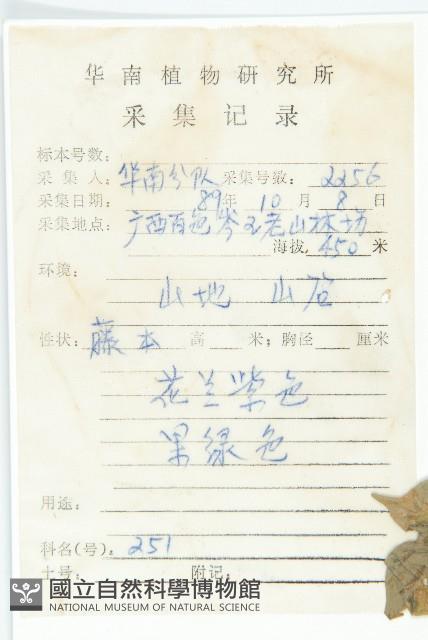 华南植物研究所
采集记录
标本号数：
采集人：华南分队 采集号数：2256
采集日期：89年10月8日
采集地点：广西百色岑王老山林场
海拔，450米
环境：
山地 山谷
性状：藤本 高 米；胸径 厘米
花兰紫色
果绿色
用途：
科名(号)．251
土号： 附记：
國立自然科學博物館
NATIONAL MUSEUM OF NATURAL SCIENCE